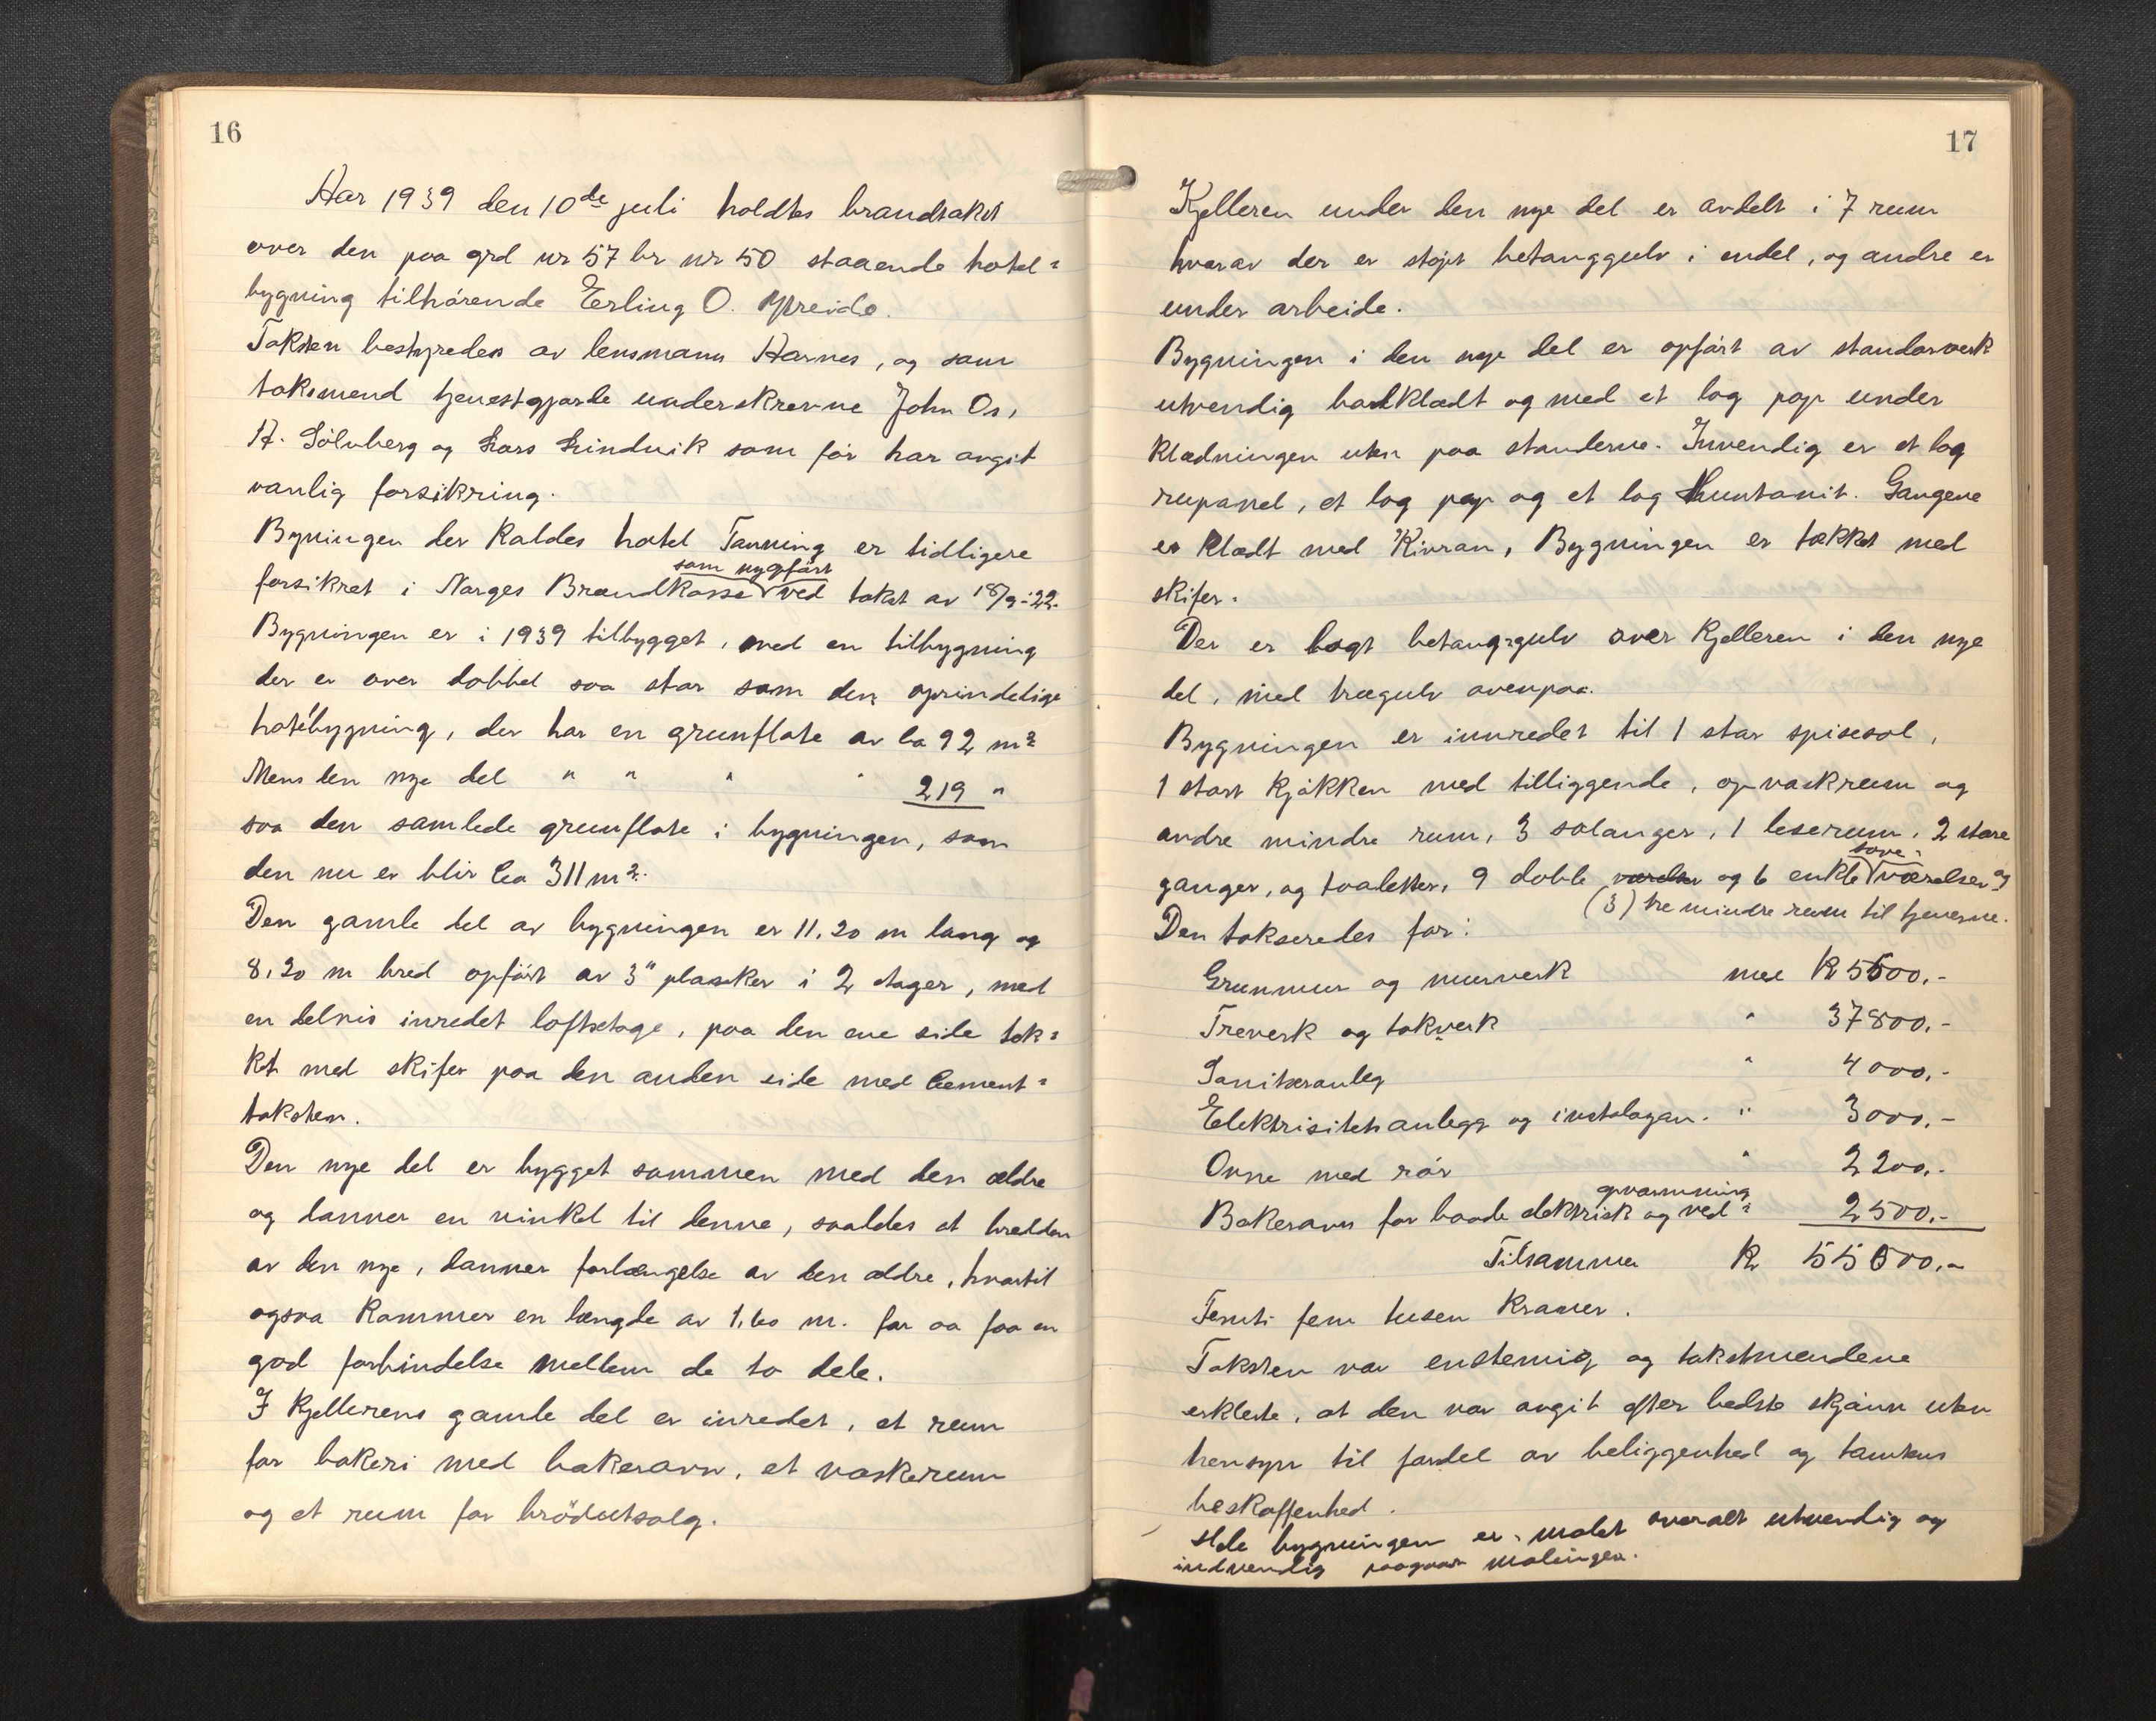 16
Aar 1939 den 10de juli holdtes brandtakst
over den paa grd nr 57 br nr 50 staaende hotel=
bygning tilhørende Erling O. Ypreide.
Taksten bestyredes av lensmann Aarnes, og som
taksmend tjenestgjorde underskrevne John Os,
A. Sølvberg og Lars Lindvik som før har avgit
vanlig forsikring.
Bygningen der kaldes hotel Tanning er tidligere
som nyopført
forsikret i Norges Brandkasse ved takst av 18/9-22.
Bygningen er i 1939 tilbygget, med en tilbygning
der er over dobbel saa stor som den oprindelige
hotelbygning, der har en grunflate av Ca 92 m²
Mens den nye del " " " " 219 "
saa den samlede grunflate i bygningen, som
den nu er blir Ca 311 m².
Den gamle del av bygningen er 11,20 m lang og
8,20 m bred opført av 3" planker i 2 etager, med
en delvis inredet loftsetage, paa den ene side tek=
ket med skifer paa den anden side med Cement=
taksten.
Den nye del er bygget sammen med den ældre
og danner en vinkel til denne, saaledes at bredden
av den nye, danner forlængelse av den ældre, hvortil
ogsaa kommer en længde av 1,60 m. for aa faa en
god forbindelse mellem de to dele.
I kjellerens gamle del er inredet, et rum
for bakeri med bakerovn, et vaskerum
og et rum for brödutsalg.
17
Kjelleren under den nye del er avdelt i 7 rum
hvorav der er støpt betanggulv i endel, og andre er
under arbeide.
Bygningen i den nye del er opført av standarverk
utvendig bordklædt og med et lag pap under
klædningen uten paa standerne. Invendig er et lag
rupanel, et lag pap og et lag Huntonit. Gangene
er klædt med Kivran, Bygningen er tækket med
skifer.
Der er lagt betang=gulv over kjelleren i den nye
del, med trægulv ovenpaa.
Bygningen er innredet til 1 stor spisesal,
1 stort kjøkken med tilliggende, opvaskrum og
andre mindre rum, 3 salonger, 1 leserum, 2 store
sove=
ganger, og toaletter, 9 doble værelser og 6 enkle værelser og
(3) tre mindre rum til tjenerne.
Den takseredes for:
Grunmur og murverk med Kr 5500,-
Treverk og takverk " 37800,-
Saniteranleg " 4000,-
Elektrisitetsanlegg og instalasjon. " 3000,-
Ovne med rør " 2200,-
opvarmning
Bakerovn for baade elektrisk og ved= 2500,-
Tilsammen Kr 55000,-
Femti fem tusen kroner.
Taksten var enstemig og takstmendene
erklerte, at den var avgit efter bedste skjønn uten
hensyn til fordel av beliggenhed og tomtens
beskaffenhed.
Hele bygningen er malet overalt utvendig og
indvendig malingen.